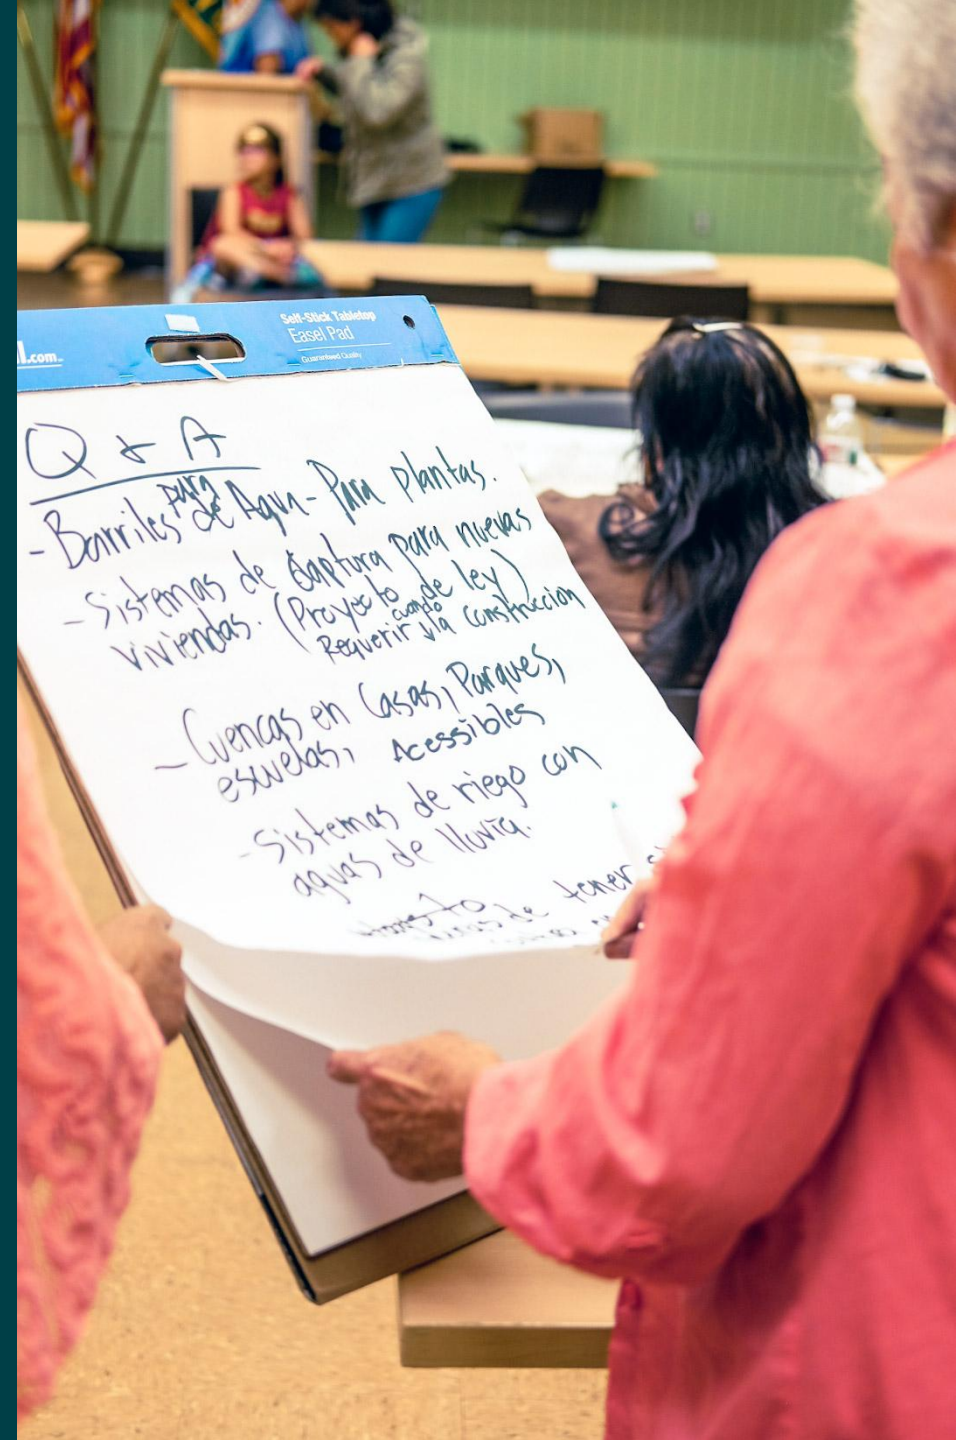 l.com
Self-Stick Tabletop
Easel Pad
Guaranteed Quality
Q & A
para
- Barriles de Agua - Para plantas.
- Sistemas de Captura para nuevas
viviendas. (Proyecto de ley)
cuando
Requerir la construccion
- Cuencas en Casas, Parques,
escuelas, Acessibles
- Sistemas de riego con
aguas de lluvia.
de tener